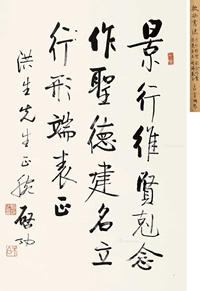 景行維賢剋念
作聖德建名立
行形端表正
洪生先生正腕
啟功